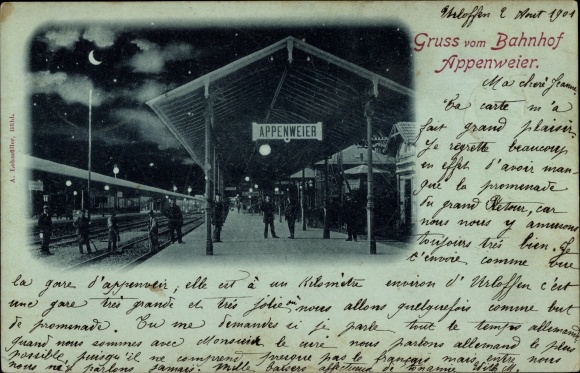 Urloffen 2 Aout 1901
Gruss vom Bahnhof
Appenweier.
Ma chère Jeanne
Ta carte m'a
fait grand plaisir
Je regrette beaucoup
en effet d'avoir man-
qué la promenade
du grand Retour, car
nous nous y amusons
toujours très bien. Je
t'envoie comme vue
la gare d'appenveir, elle est à un Kilomètre environ d'Urloffen c'est
une gare très grande et très jolie, nous allons quelquefois comme but
de promenade. Tu me demandes si je parle tout le temps allemand
quand nous sommes avec Monsieur le curé nous parlons allemand le plus
possible, puisqu'il ne comprend presque pas le français mais entre nous
nous ne parlons jamais. Mille baisers affectueux de
APPENWEIER
A. Bühl.